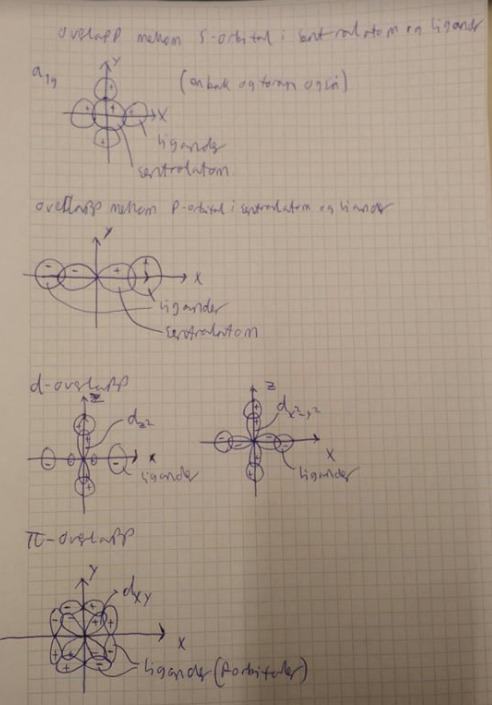 overlapp mellom s-orbital i sentralatom og ligander
a1g
y
(en bak og foran også)
x
ligander
sentralatom
overlapp mellom p-orbital i sentralatom og ligander
y
- - + +
x
ligander
sentralatom
d-overlapp
z
dz2
x
ligander
z
dx2,2
x
ligander
π-overlapp
y
dxy
x
ligander (p orbitaler)